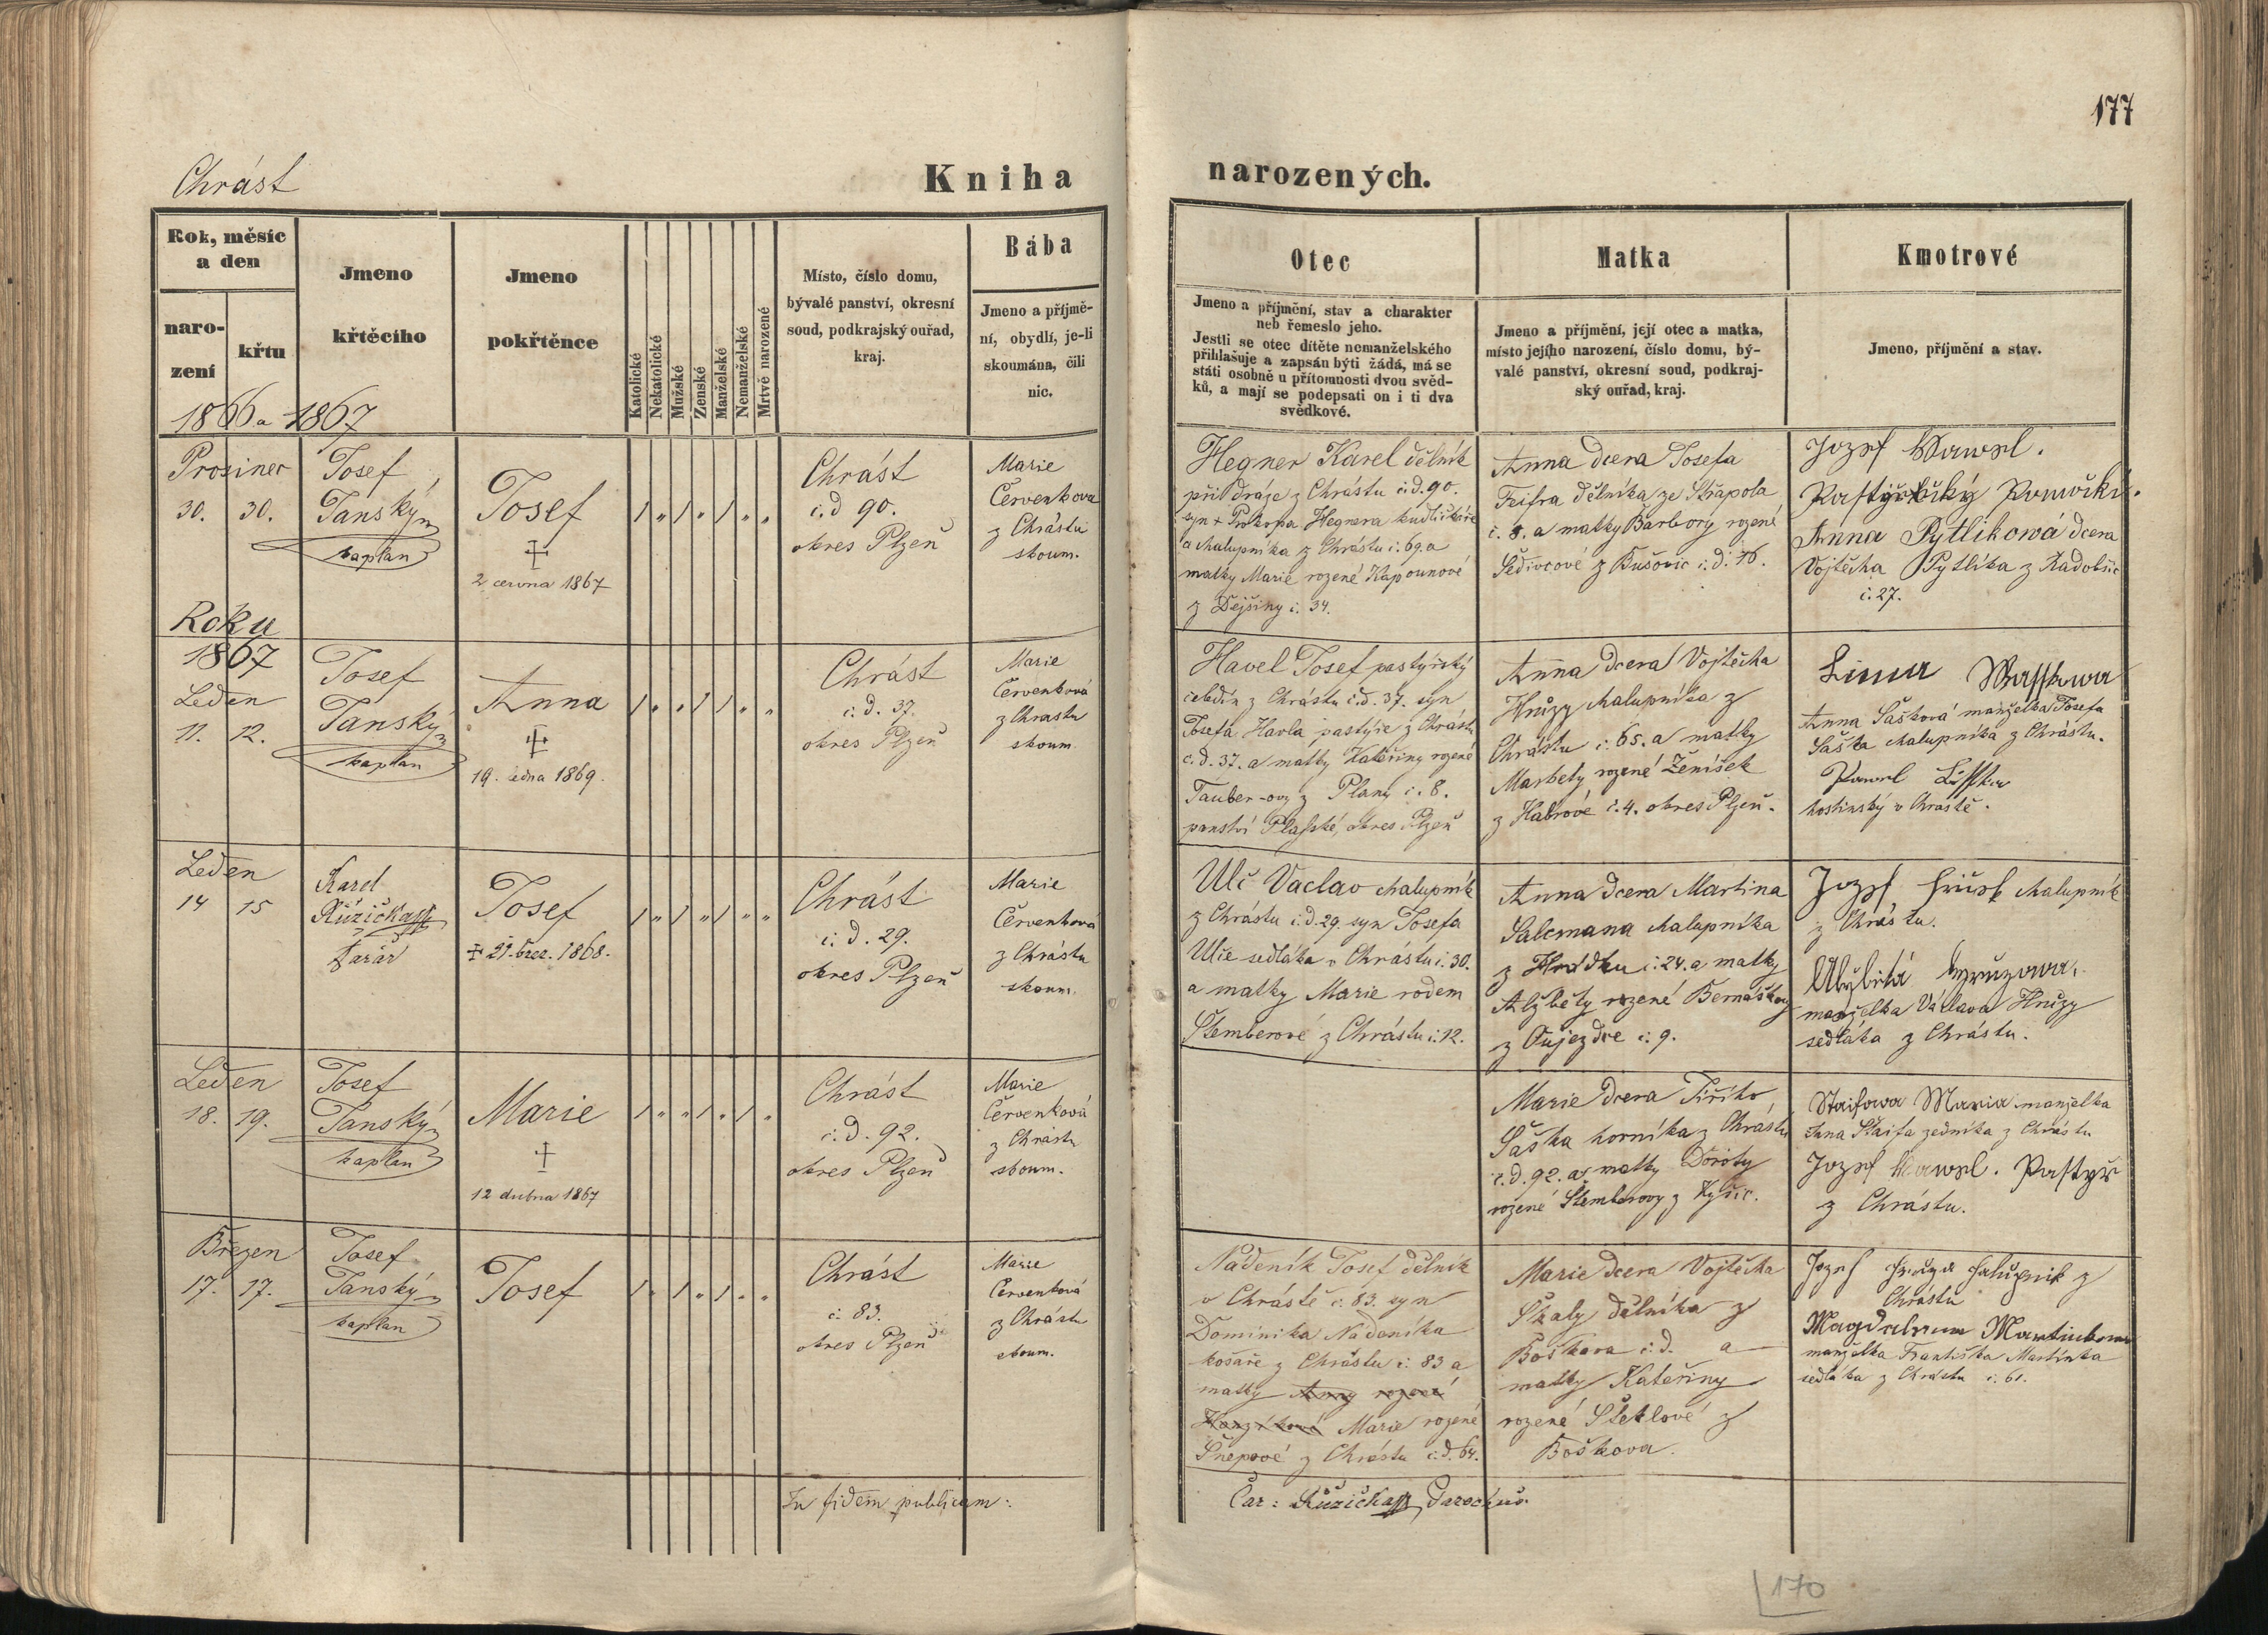 177
Chrást
Kniha narozených.
Rok, měsíc
a den
naro-
zení
křtu
Jmeno
křtěcího
Jmeno
pokřtěnce
Katolické
Nekatolické
Mužské
Ženské
Manželské
Nemanželské
Mrtvě narozené
Místo, číslo domu,
bývalé panství, okresní
soud, podkrajský ouřad,
kraj.
Bába
Jmeno a příjmě-
ní, obydlí, je-li
skoumána, čili
nic.
Otec
Jmeno a příjmění, stav a charakter
neb řemeslo jeho.
Jestli se otec dítěte nemanželského
přihlašuje a zapsán býti žádá, má se
státi osobně u přítomnosti dvou svěd-
ků, a mají se podepsati on i ti dva
svědkové.
Matka
Jmeno a příjmění, její otec a matka,
místo jejího narození, číslo domu, bý-
valé panství, okresní soud, podkraj-
ský ouřad, kraj.
Kmotrové
Jmeno, příjmění a stav.
1866 a 1867
Prosinec
30. 30.
Josef
Janský
kaplan
Josef
2 června 1867
Chrást
č.d 90.
okres Plzeň
Marie
Červenkova
z Chrástu
skoum.
Hegner Karel dělník
při dráze z Chrástu č.d. 90.
syn + Prokopa Hegnera
a chalupníka z Chrástu č. 69. a
matky Marie rozené Kapounové
z Dejšiny č. 34.
Anna dcera Josefa
Feifra dělníka ze Střapola
č. 8. a matky Barbory rozené
Šedivcové z Bušovic č.d. 16.
Jozef Hawel.
Anna Pytlikowá dcera
Vojtěcha Pytlíka z Kadobčic
č. 27.
Roku
1867
Leden
11. 12.
Josef
Janský
kaplan
Anna
19. ledna 1869.
Chrást
č.d. 37.
okres Plzeň
Marie
Červenková
z Chrastu
skoum.
Havel Josef pastýřský
čeledín z Chrástu č.d. 37. syn
Josefa Havla pastýře z Chrástu
č.d. 37. a matky Kateřiny rozené
Tauber-ovy z Plany č. 8.
panství Plasské, okres Plzeň
Anna dcera Vojtěcha
Hrůzy chalupníka z
Chrástu č. 65. a matky
Markety rozené Ženíšek
z Habrové č. 4. okres Plzeň.
Anna Šašková manželka Josefa
Šaška chalupníka z Chrástu.
hostinský v Chrástě.
Leden
14 15
Karel
Růžička
farář
Josef
21. břez. 1868.
Chrást
č. d. 29.
okres Plzeň
Marie
Červenková
z Chrástu
skoum.
Ulč Vaclav chalupník
z Chrástu č.d. 29. syn Josefa
Ulče sedláka v Chrástu č. 30.
a matky Marie rodem
Štemberové z Chrástu č. 12.
Anna dcera Martina
Salcmana chalupníka
z Hrádku č. 24. a matky
Alžběty rozené Bernáškovy
z Oujezdce č. 9.
chalupník
z Chrástu.
manželka Václava Hrůzy
sedláka z Chrástu.
Leden
18. 19.
Josef
Janský
kaplan
Marie
12 dubna 1867
Chrást
č. d. 92.
okres Plzeň
Marie
Červenková
z Chrástu
skoum.
Marie dcera Jiřího
Šaška horníka z Chrástu
č.d. 92. a matky Doroty
rozené Štemberovy z Kyšic.
Staifowa Maria manželka
Jana Štaifa zedníka z Chrástu
Jozef Hawel. Pastyř
z Chrástu.
Březen
17. 17.
Josef
Janský
kaplan
Josef
Chrást
č. 83.
okres Plzeň
Marie
Červenková
z Chrástu
skoum.
Nádeník Josef dělník
v Chrástě č. 83. syn
Dominika Nádeníka
košaře z Chrástu č. 83 a
matky Anny rozené
Marie rozené
Šnepové z Chrástu č.d. 64.
Marie dcera Vojtěcha
Škaly dělníka z
Boškova č.d. a
matky Kateřiny
rozené Šteklové z
Boškova.
Jozef Hruza halupnik z
Chrástu
Magdalena Martinkowa
manželka Františka Martínka
sedláka z Chrástu č. 61.
In fidem publicam:
Car: Růžička, Parochus.
170